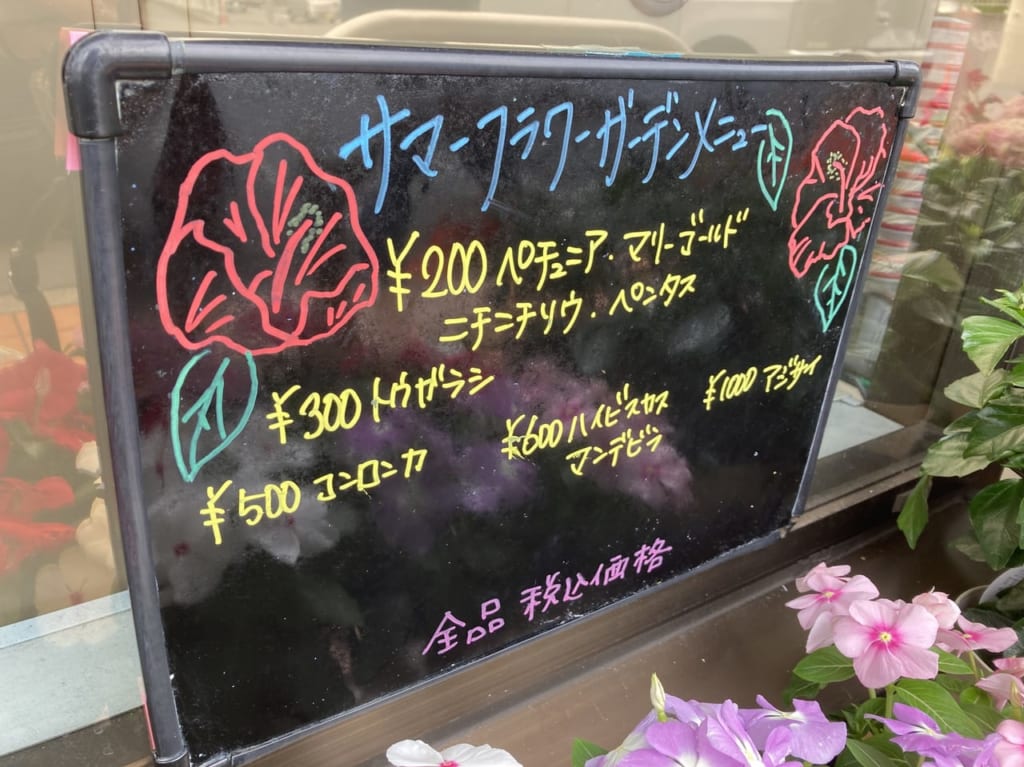 サマーフラワーガーデンメニュー
¥200 ペチュニア・マリーゴールド
ニチニチソウ・ペンタス
¥300 トウガラシ
¥500 コンロンカ
¥600 ハイビスカス
マンデビラ
¥1000 アジサイ
全品 税込価格